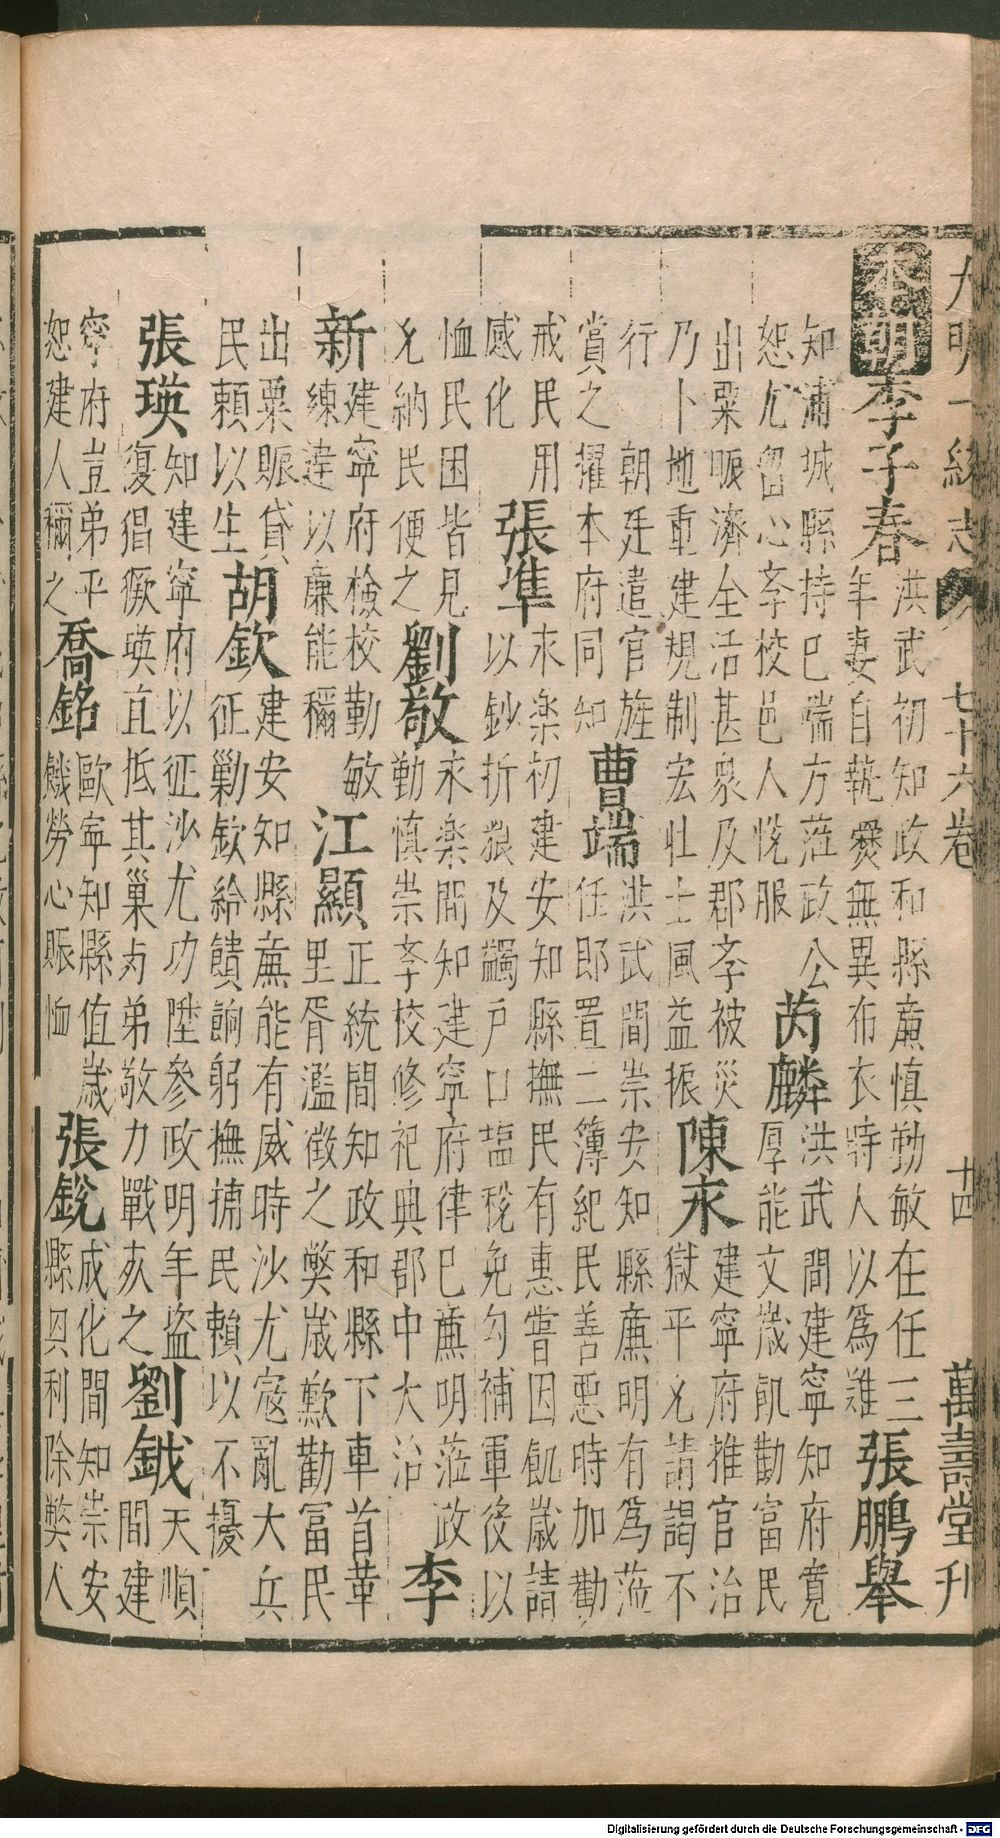 大明一統志 七十六卷 十四 萬壽堂刊
本朝
李子春
洪武初知政和縣廉慎勤敏在任三
年妻自執爨無異布衣時人以為難
張鵬舉
知浦城縣持已端方蒞政公
恕尤留心斈校邑人恱服
芮麟
洪武間建寧知府寛
厚能文歳飢勸富民
出粟賑濟全活甚衆及郡斈被災
乃卜地重建規制宏壯士風益振
陳永
建寧府推官治
獄平允請謁不
行 朝廷遣官旌
賞之擢本府同知
曹端
洪武間崇安知縣廉明有為蒞
任郎置二簿紀民善惡時加勸
戒民用
感化
張凖
永楽初建安知縣撫民有惠嘗因飢歳請
以鈔折粮及蠲戸口塩稅免勾補軍後以
恤民困皆見
允納民便之
劉敬
永楽間知建寧府律巳廉明蒞政
勤慎崇斈校修祀典郡中大治
李
新
建寧府檢校勤敏
練達以廉能稱
江顯
正統間知政和縣下車首革
里胥濫徵之獘歳歉勸富民
出粟賑貸
民頼以生
胡欽
建安知縣廉能有威時沙尤寇亂大兵
征勦欽給饋餉躬撫擄民賴以不擾
張瑛
知建寧府以征沙尤功陞參政明年盗
復猖獗瑛直抵其巢与弟敬力戰死之
劉鉞
天順
間建
寧府豈弟平
恕建人稱之
喬銘
歐寧知縣值歳
饑勞心賑恤
張銳
成化間知崇安
縣興利除獘人
Digitalisierung gefördert durch die Deutsche Forschungsgemeinschaft - DFG